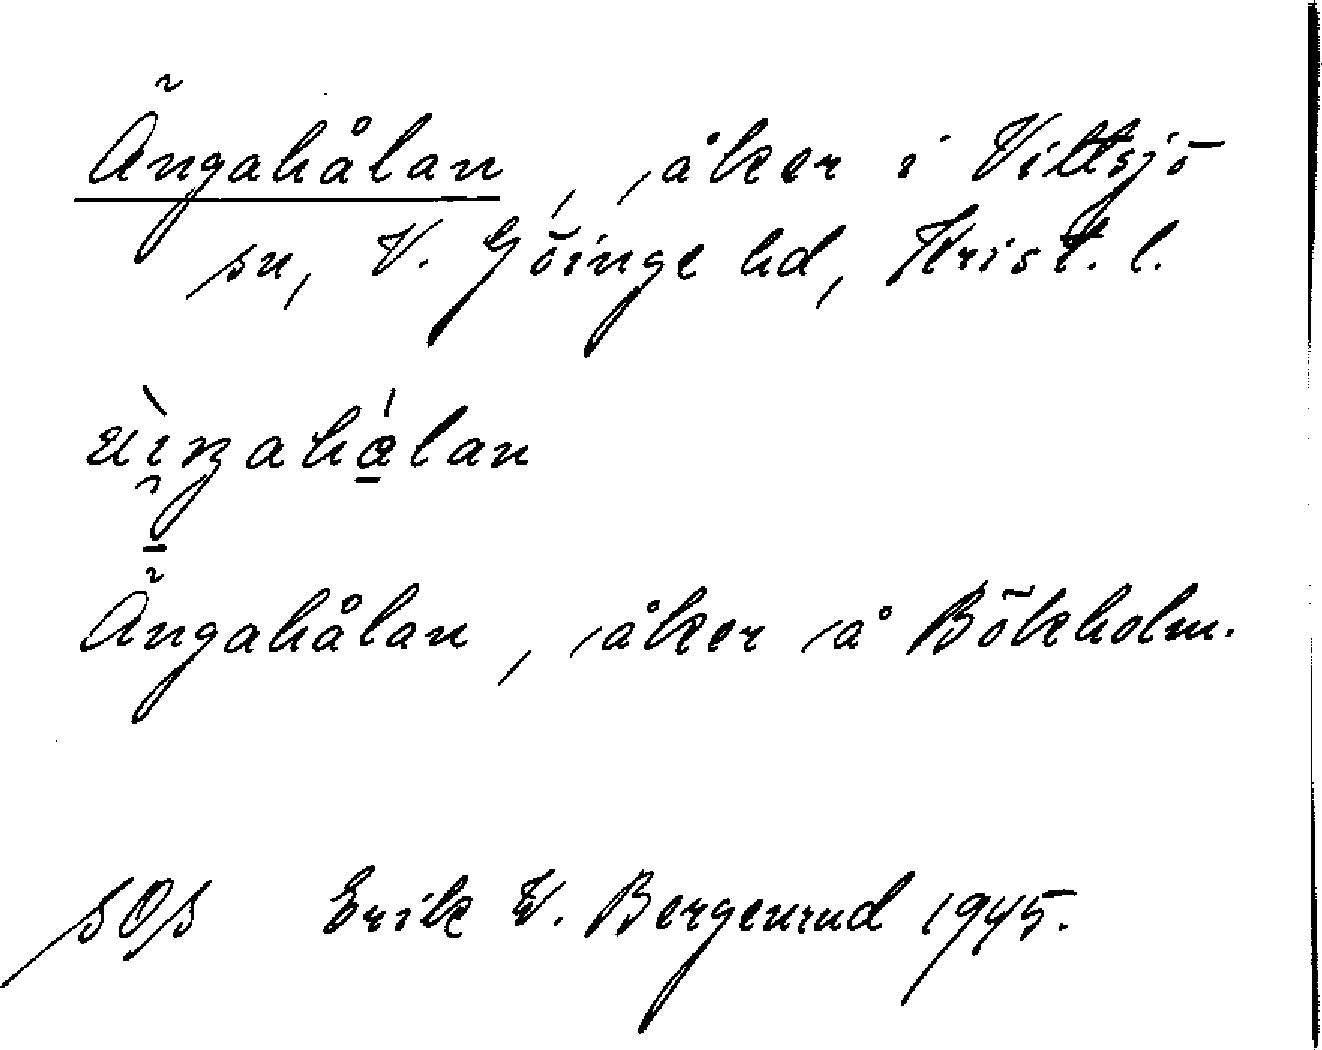 Ängahålan, åker i Vittsjö
sn, V. Göinge hd, Krist. l.
Ängahålan, åker å Bökholm.
SOS Erik W. Bergenrud 1945.